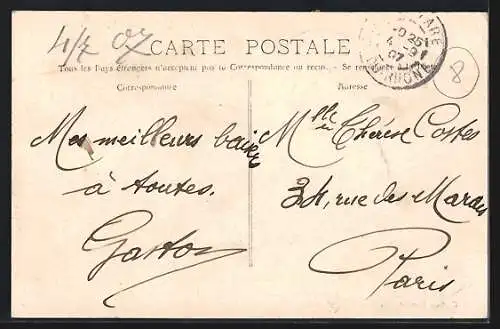 4/7 07
CARTE POSTALE
Tous les Pays étrangers n'acceptent pas la Correspondance au recto. - Se renseigner à la Poste
Correspondance
Adresse
Mes meilleurs baisers
à toutes.
Gaston
Mlle Thérèse Costes
34, rue des Marais
Paris
8
RHONE